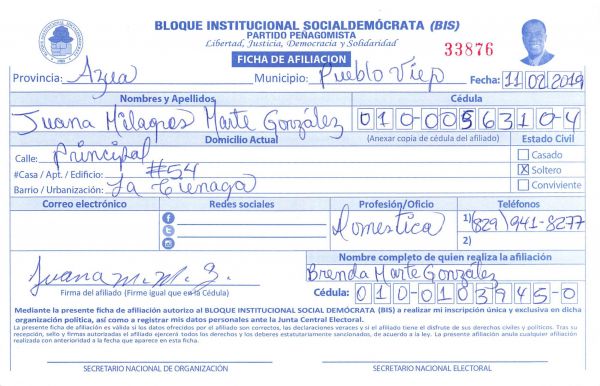 BLOQUE INSTITUCIONAL SOCIALDEMÓCRATA (BIS)
PARTIDO PEÑAGOMISTA
Libertad, Justicia, Democracia y Solidaridad
FICHA DE AFILIACION
33876
Provincia: Azua Municipio: Pueblo Viejo Fecha: 11/02/2019
Nombres y Apellidos Cédula
Juana Milagros Marte González 010-0056310-4
Domicilio Actual (Anexar copia de cédula del afiliado) Estado Civil
Calle: Principal Casado
#Casa / Apt. / Edificio: #54 X Soltero
Barrio / Urbanización: La Cienaga Conviviente
Correo electrónico Redes sociales Profesión/Oficio Teléfonos
Domestica 1) (829) 941-8277
2)
Nombre completo de quien realiza la afiliación
Juana M. M. G. Brenda Marte González
Firma del afiliado (Firme igual que en la Cédula) Cédula: 010-0103945-0
Mediante la presente ficha de afiliación autorizo al BLOQUE INSTITUCIONAL SOCIAL DEMÓCRATA (BIS) a realizar mi inscripción única y exclusiva en dicha
organización política, así como a registrar mis datos personales ante la Junta Central Electoral.
La presente ficha de afiliación es válida si los datos ofrecidos por el afiliado son correctos, las declaraciones veraces y si el afiliado tiene el disfrute de sus derechos civiles y políticos. Tras su
recepción, sello y firmas autorizadas el afiliado ejercerá todos los derechos y los deberes estatutariamente sancionados, de acuerdo a la ley. La presente afiliación anula cualquier afiliación
realizada con anterioridad a la fecha que aparece en esta ficha.
SECRETARIO NACIONAL DE ORGANIZACIÓN SECRETARIO NACIONAL ELECTORAL